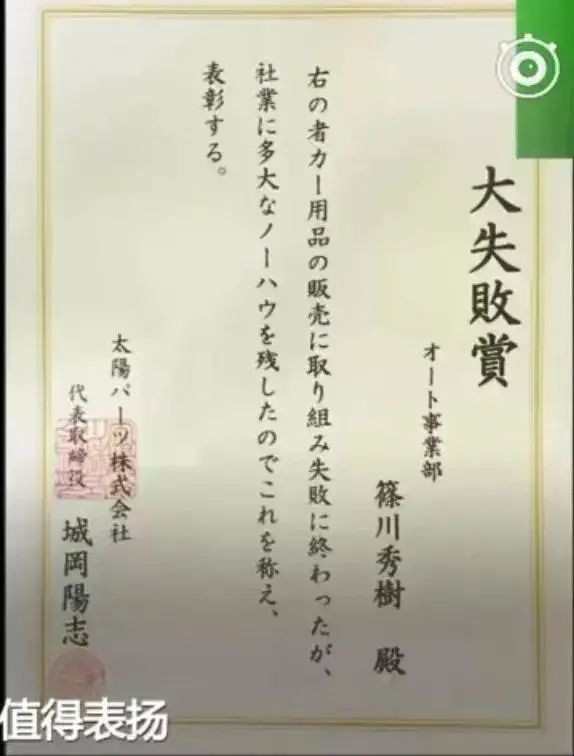 大失敗賞
オート事業部
篠川秀樹　殿
右の者カー用品の販売に取り組み失敗に終わったが、
社業に多大なノーハウを残したのでこれを称え、
表彰する。
太陽パーツ株式会社
代表取締役　城岡陽志
值得表扬